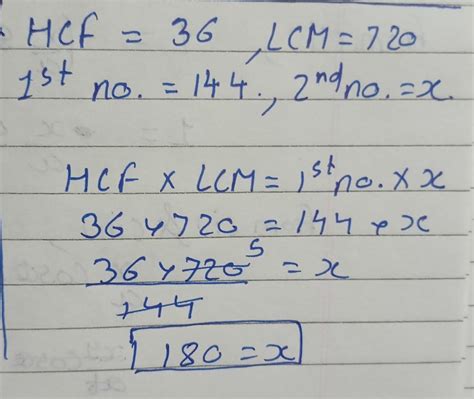 HCF = 36 , LCM = 720
1st no. = 144. , 2nd no. = x.
HCF x LCM = 1st no. x x
36 x 720 = 144 x x
36 x 720 5 = x
144
180 = x